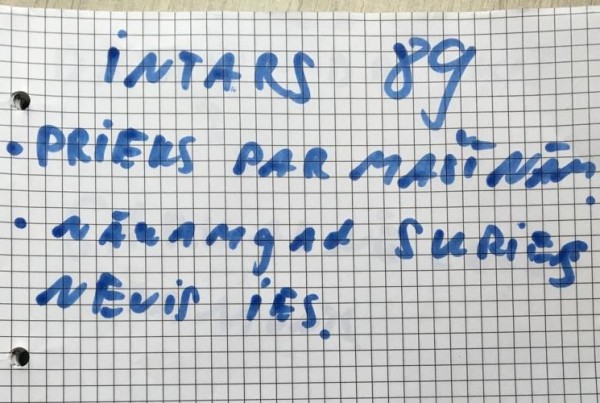 INTARS 89
• PRIEKS PAR MAŠĪNĀM.
• NĀKAMGAD SKRIES
NEVIS IES.